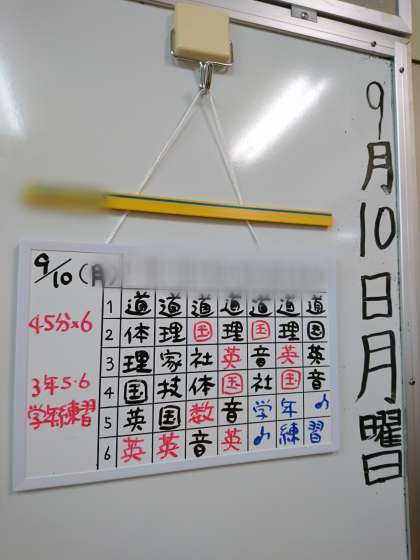 9月10日月曜日
9/10(月)
45分×6
3年5・6
学年練習
1 道 道 道 道 道 道 道
2 体 理 国 理 国 理 国
3 理 家 社 英 音 英 英
4 国 技 体 国 社 国 音
5 英 国 数 音 学 年 ♪
6 英 英 音 英 ♪ 練 習